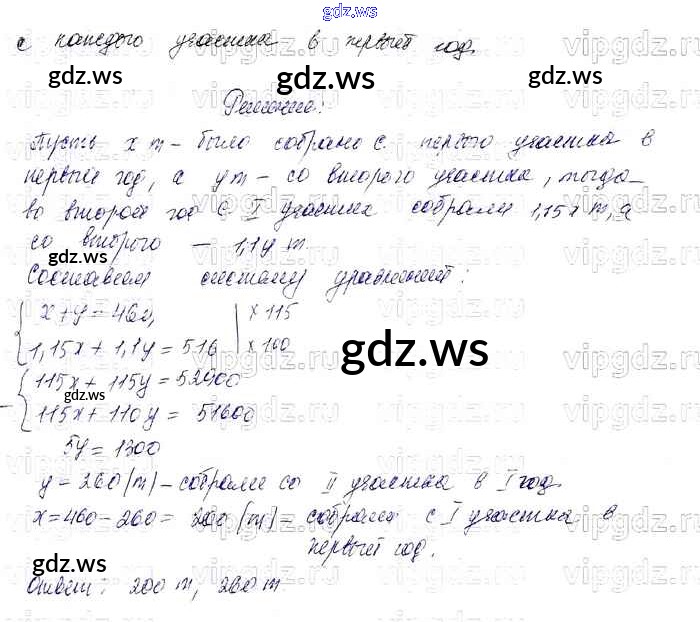 gdz.ws
с каждого участка в первый год.
Решение:
Пусть x т – было собрано с первого участка в
первый год, а y т – со второго участка, тогда
во второй год с I участка собрали 1,15x т, а
со второго – 1,1y т.
Составим систему уравнений:
x + y = 460, | × 115
1,15x + 1,1y = 516 | × 100
115x + 115y = 52900
115x + 110y = 51600
5y = 1300
y = 260 (т) – собрали со II участка в I год.
x = 460 – 260 = 200 (т) – собрали с I участка в
первый год.
Ответ: 200 т, 260 т.
gdz.ws
gdz.ws
gdz.ws
gdz.ws
gdz.ws
gdz.ws
gdz.ws
gdz.ws
vipgdz.ru